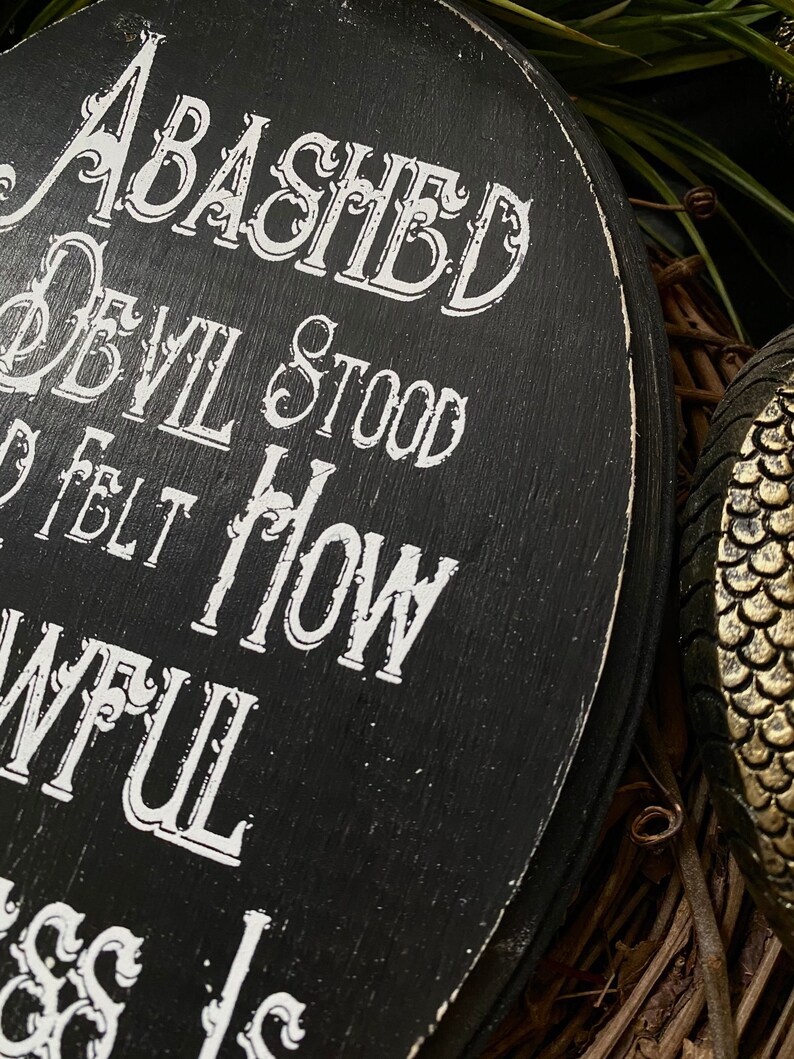 Abashed
Devil Stood
Felt How
wful
ess Is